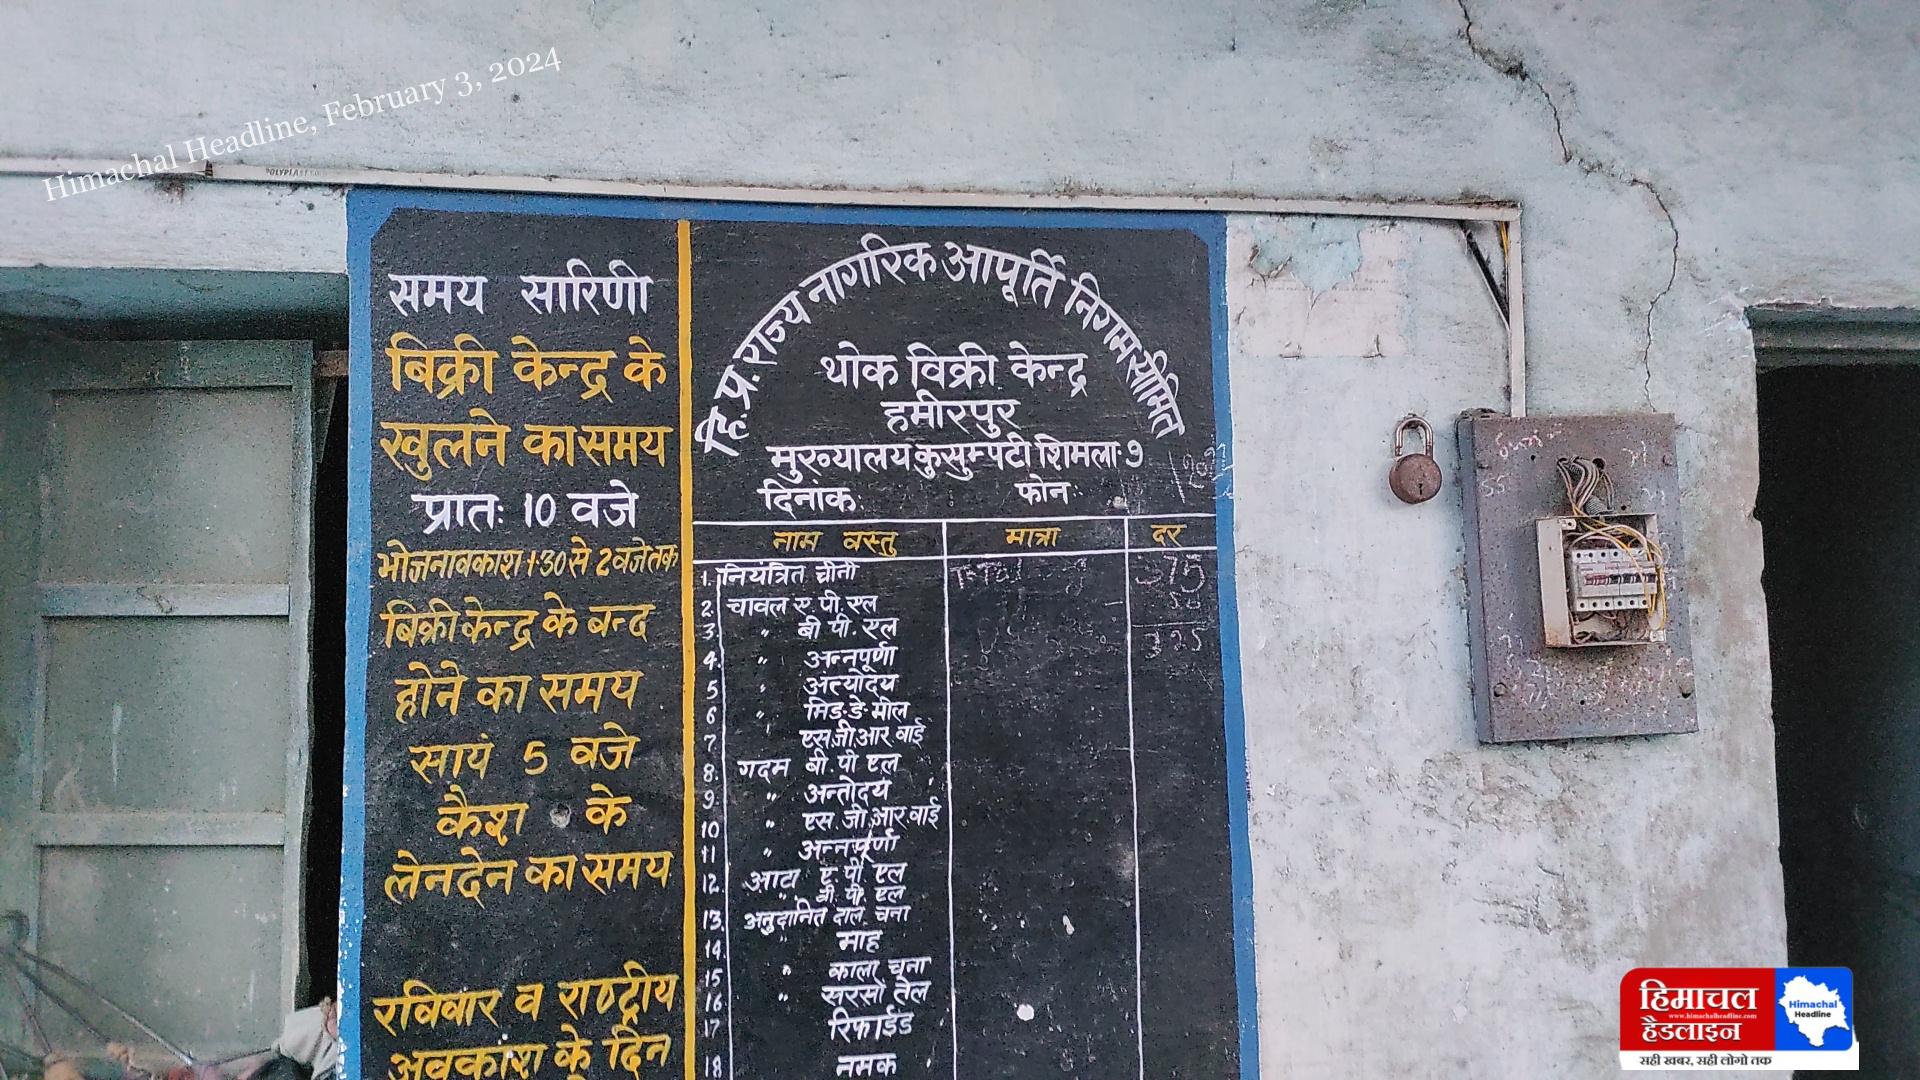 Himachal Headline, February 3, 2024
POLYPLAST
समय सारिणी
बिक्री केन्द्र के
खुलने का समय
प्रातः 10 वजे
भोजनावकाश 1·30 से 2 वजे तक
बिक्री केन्द्र के बन्द
होने का समय
सायं 5 वजे
कैश के
लेनदेन का समय
रविवार व राष्ट्रीय
अवकाश के दिन
हि.प्र. राज्य नागरिक आपूर्ति निगम सीमित
थोक विक्री केन्द्र
हमीरपुर
मुख्यालय कुसुम्पटी शिमला-9
दिनांक. फोन:
नाम वस्तु मात्रा दर
1. नियंत्रित चीनी 375
2. चावल ए. पी. एल
3. " बी पी. एल 325
4. " अन्नपूर्णा
5 " अंत्योदय
6 " मिड-डे-मील
7. " एस.जी.आर वाई
8. गदम बी. पी एल
9. " अन्तोदय
10 " एस. जी. आर. वाई
11 " अन्नपूर्णा
12. आटा ए पी एल
" वी. पी. एल
13. अनुदानित दाल चना
14. " माह
15 " काला चना
16 " सरसों तेल
17 रिफाईंड
18 नमक
हिमाचल
www.himachalheadline.com
हैडलाइन
सही खबर, सही लोगो तक
Himachal
Headline